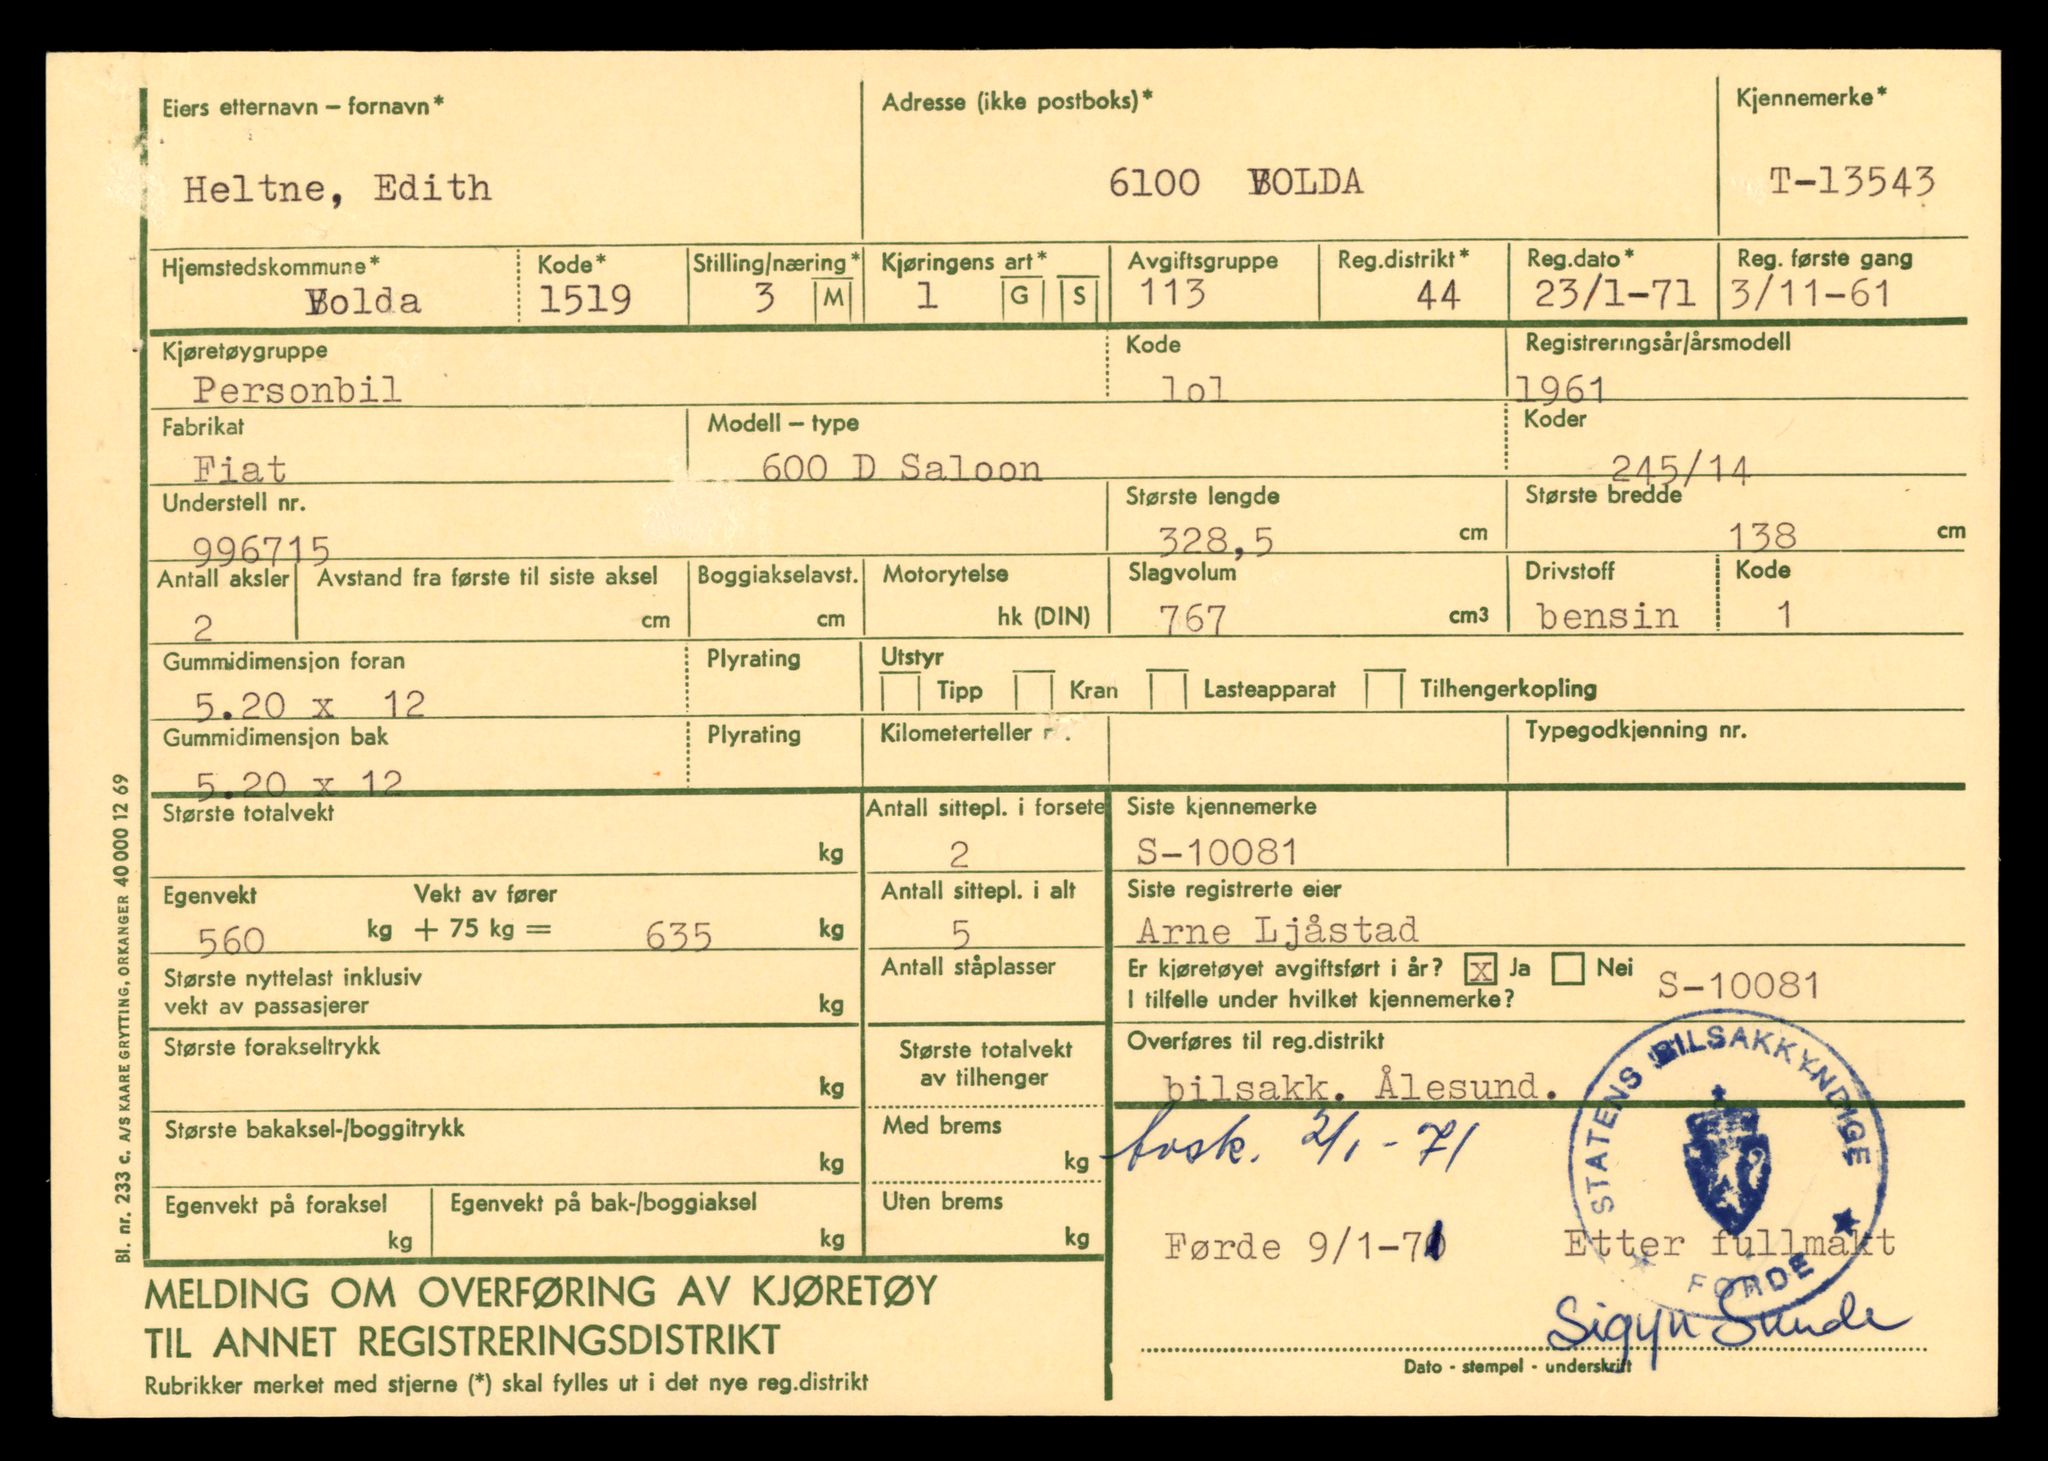 Eiers etternavn – fornavn*
Heltne, Edith
Adresse (ikke postboks)*
6100 VOLDA
Kjennemerke*
T-13543
Hjemstedskommune*
Volda
Kode*
1519
Stilling/næring*
3 M
Kjøringens art*
1 G S
Avgiftsgruppe
113
Reg.distrikt*
44
Reg.dato*
23/1-71
Reg. første gang
3/11-61
Kjøretøygruppe
Personbil
Kode
lol
Registreringsår/årsmodell
1961
Fabrikat
Fiat
Modell – type
600 D Saloon
Koder
245/14
Understell nr.
996715
Største lengde
328,5 cm
Største bredde
138 cm
Antall aksler
2
Avstand fra første til siste aksel
cm
Boggiakselavst.
cm
Motorytelse
hk (DIN)
Slagvolum
767 cm3
Drivstoff
bensin
Kode
1
Gummidimensjon foran
5.20 x 12
Plyrating
Utstyr
Tipp Kran Lasteapparat Tilhengerkopling
Gummidimensjon bak
5.20 x 12
Plyrating
Kilometerteller
Typegodkjenning nr.
Største totalvekt
kg
Antall sittepl. i forsete
2
Siste kjennemerke
S-10081
Egenvekt
560 kg
Vekt av fører
+ 75 kg = 635 kg
Antall sittepl. i alt
5
Siste registrerte eier
Arne Ljåstad
Største nyttelast inklusiv
vekt av passasjerer kg
Antall ståplasser
Er kjøretøyet avgiftsført i år? x Ja Nei
I tilfelle under hvilket kjennemerke? S-10081
Største forakseltrykk
kg
Største totalvekt
av tilhenger
Overføres til reg.distrikt
bilsakk. Ålesund.
Største bakaksel-/boggitrykk
kg
Med brems
kg
2/1-71
Egenvekt på foraksel
kg
Egenvekt på bak-/boggiaksel
kg
Uten brems
kg
Førde 9/1-71 Etter fullmakt
STATENS BILSAKKYNDIGE
FØRDE
Sigyn Sunde
Dato - stempel - underskrift
MELDING OM OVERFØRING AV KJØRETØY
TIL ANNET REGISTRERINGSDISTRIKT
Rubrikker merket med stjerne (*) skal fylles ut i det nye reg.distrikt
Bl. nr. 233 c. A/S KAARE GRYTTING, ORKANGER 40 000 12 69